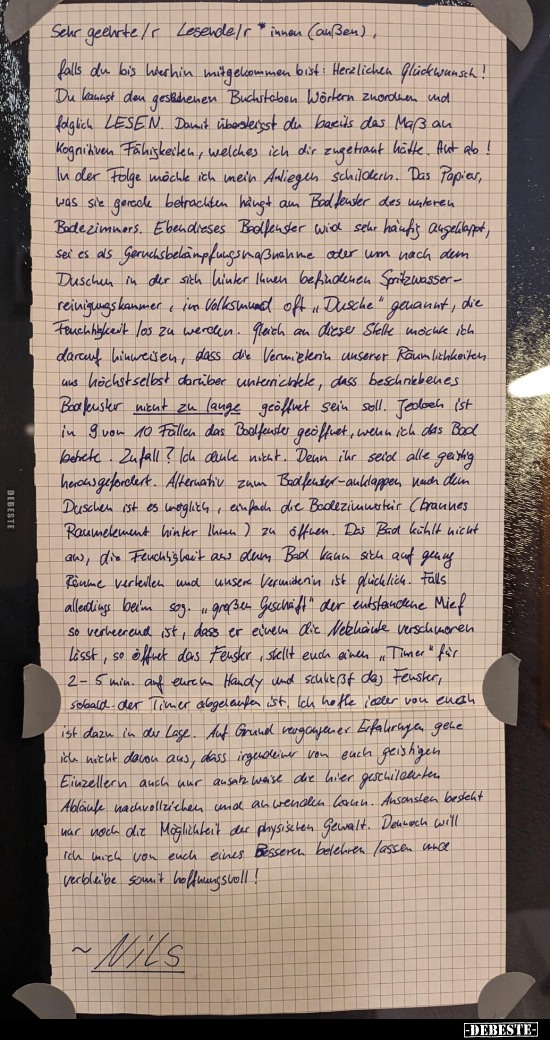 Sehr geehrte/r Lesende/r *innen (außen),
falls du bis hierhin mitgekommen bist: Herzlichen Glückwunsch!
Du kannst den gesehenen Buchstaben Wörtern zuordnen und
folglich LESEN. Damit übersteigst du bereits das Maß an
Kognitiven Fähigkeiten, welches ich dir zugetraut hätte. Hut ab!
In der Folge möchte ich mein Anliegen schildern. Das Papier,
was sie gerade betrachten hängt am Badfenster des unteren
Badezimmers. Ebendieses Badfenster wird sehr häufig angeklappt,
sei es als Geruchsbekämpfungsmaßnahme oder um nach dem
Duschen in der sich hinter Ihnen befindenen Spritzwasser-
reinigungskammer, im Volksmund oft „Dusche" genannt, die
Feuchtigkeit los zu werden. Gleich an dieser Stelle möchte ich
darauf hinweisen, dass die Vermieterin unserer Räumlichkeiten
uns höchstselbst darüber unterrichtete, dass beschriebenes
Badfenster nicht zu lange geöffnet sein soll. Jedoch ist
in 9 von 10 Fällen das Badfenster geöffnet, wenn ich das Bad
betrete. Zufall? Ich denke nicht. Denn ihr seid alle geistig
herausgefordert. Alternativ zum Badfenster-anklappen nach dem
Duschen ist es möglich, einfach die Badezimmertür (braunes
Raumelement hinter Ihnen) zu öffnen. Das Bad kühlt nicht
aus, die Feuchtigkeit aus dem Bad kann sich auf genug
Räume verteilen und unsere Vermieterin ist glücklich. Falls
allerdings beim sog. „großen Geschäft" der entstandene Mief
so verheerend ist, dass er einem die Netzhäute verschmoren
lässt, so öffnet das Fenster, stellt euch einen „Timer" für
2-5 min. auf eurem Handy und schließt das Fenster,
sobald der Timer abgelaufen ist. Ich hoffe jeder von euch
ist dazu in der Lage. Auf Grund vergangener Erfahrungen gehe
ich nicht davon aus, dass irgendeiner von euch geistigen
Einzellern auch nur ansatzweise die hier geschilderten
Abläufe nachvollziehen und anwenden kann. Ansonsten besteht
nur noch die Möglichkeit der physischen Gewalt. Dennoch will
ich mich von euch eines Besseren belehren lassen und
verbleibe somit hoffnungsvoll!
~ Nils
DEBESTE
-DEBESTE-